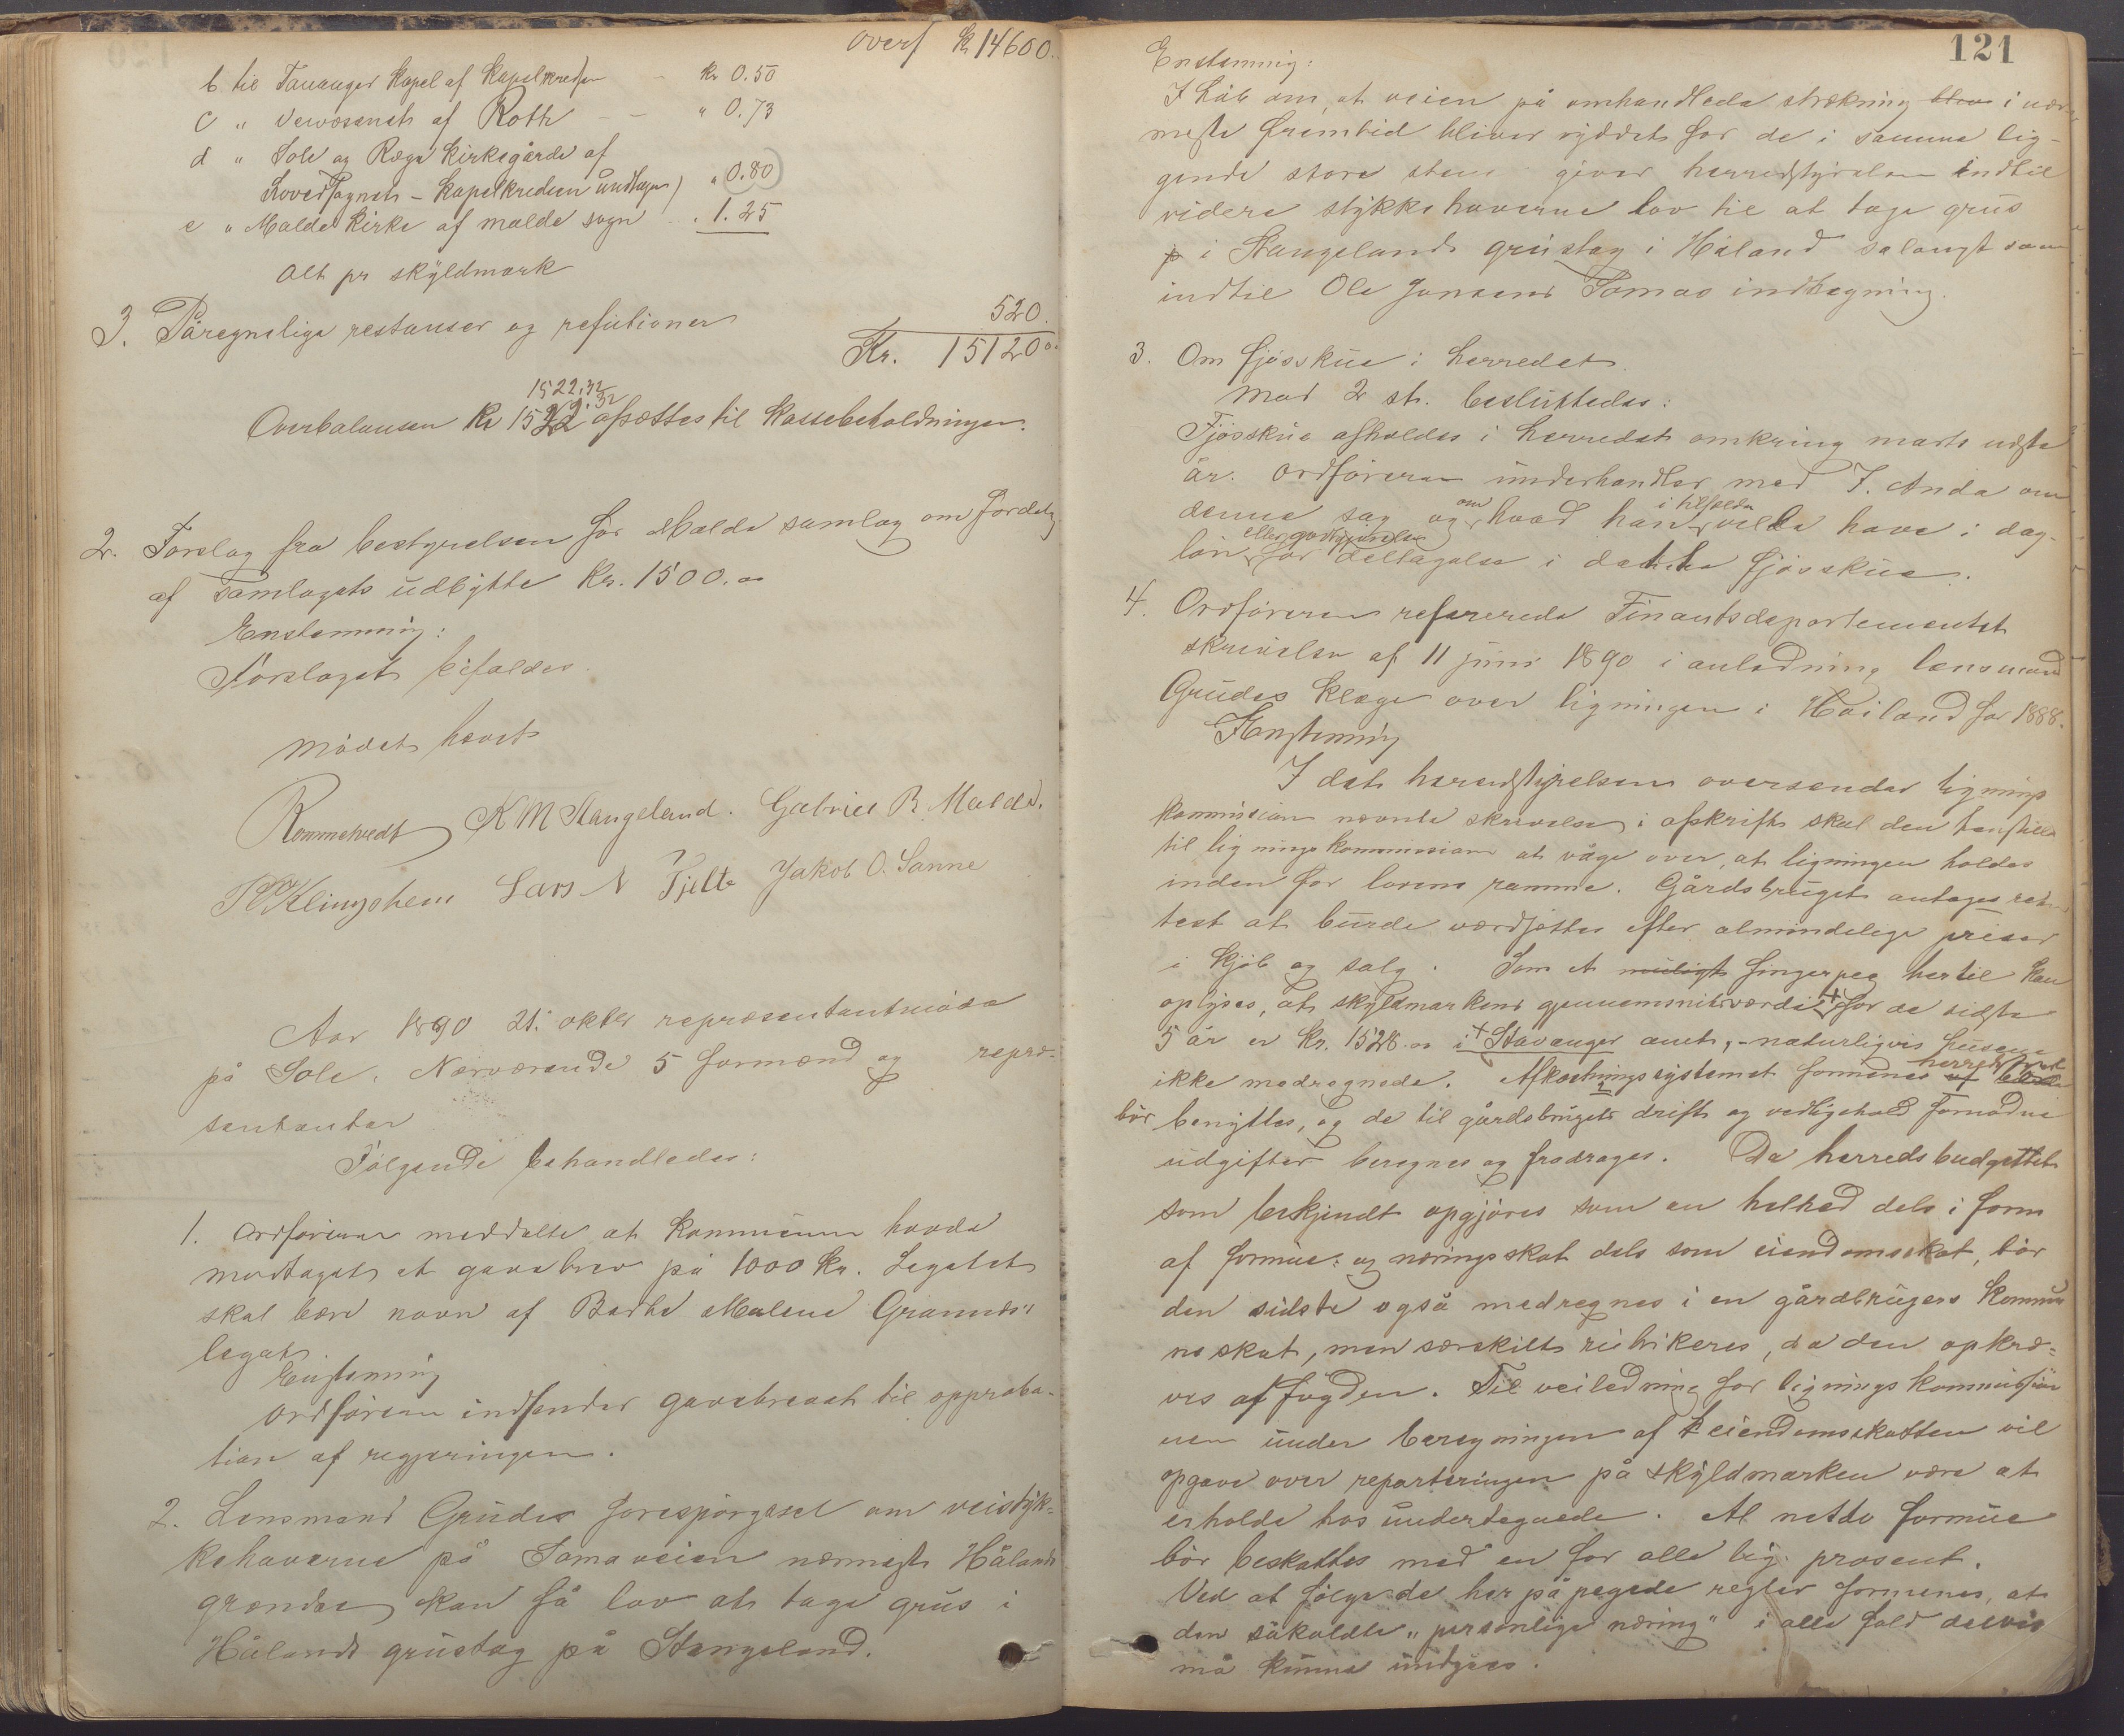 overf Kr 14600.
b til Tananger Kapel af Kapelkredsen - kr 0.50
c " Veivæsenet af Roth - - " 0.73
d " Sole og Ræge kirkegårde af
Hovedsognet - Kapelkredsen undtagen) " 0.80
e " Malde Kirke af malde sogn " 1.25
Alt pr skyldmark
3. Påregnelige restanser og refutioner 520.
Kr. 15120 00
1522.32
Overbalansen Kr 1522.32 afsættes til Kassebeholdningen.
2. Forslag fra bestyrelsen for Malde samlag om fordeling
af Samlagets udbytte Kr. 1500.00
Enstemmig:
Forslaget bifaldes.
Mødet hævet
Rommetvedt K M Stangeland. Gabriel R. Malde.
Klingsheim Lars N Tjelte Jakob O. Sanne
Aar 1890 21. oktbr repræsentantmøde
på Sole. Nærværende 5 formænd og repræ-
sentanter
Følgende behandledes:
1. Ordføreren meddelte at Kommunen havde
modtaget et gavebrev på 1000 Kr. Legatet
skal bære navn af Berthe Malene Grannes's
legat.
Enstemmig
Ordføreren indsender gavebrevet til approba-
tion af regjeringen.
2. Lensmand Grudes forespørgsel om veistyk-
kehaverne på Somaveien nærmest Hålands
grændse kan få lov at tage grus i
Hålands grustag på Stangeland.
121
Enstemmig:
I håb om, at veien på omhandlede strækning blev i nær-
meste fremtid bliver ryddet for de i samme lig-
gende store stene giver herredstyrelsen indtil
videre stykkehaverne lov til at tage grus
p i Stangelands grustag i Håland salangt som
indtil Ole Jonsens Somas indhegning.
3. Om fjøsskue i herredet.
Mod 2 st. besluttedes:
Fjøsskue afholdes i herredet omkring marts næste
år. Ordføreren underhandler med J. Anda om
denne sag og om hvad han i tilfælde ville have i dag-
løn eller godtgjørelse for deltagelse i dette fjøsskue.
4. Ordføreren refererede Finantsdepartementet
skrivelse af 11 juni 1890 i anledning lensmand
Grudes klage over ligningen i Håland for 1888.
Enstemmig
I det herredstyrelsen oversender lignings
kommission nævnte skrivelse i afskrift skal den henstille
til ligningskommission at våge over, at ligningen holdes
inden for lovens ramme. Gårdsbruget antages ret-
test at burde værdsættes efter almindelige priser
i kjøb og salg. Som et muligt fingerpeg hertil kan
oplyses, at skyldmarkens gjennemsnitsværdi + for de sidste
5 år er Kr. 1528.00 i + Stavanger amt, - naturligvis husene
ikke medregnede. Afkastningssystemet formenes af herredsstyret
bør benyttes, og de til gårdsbrugets drift og vedligehold fornødne
udgifter beregnes og fradrages. Da herredsbudgettet
som bekjendt opgjøres som en helhed dels i form
af formue- og næringsskat dels som eiendomsskat, bør
den sidste også medregnes i en gårdbrugers Kommu-
neskat, men særskilt rubrikeres, da den opkræ-
ves af fogden. Til veiledning for ligningskommissio-
nen under beregningen af eiendomsskatten vil
opgave over reparteringen på skyldmarken være at
erholde hos undertegnede. Al netto formue
bør beskattes med en for alle lig prosent.
Ved at følge de her påpegede regler formenes, at
den såkaldte "personlige næring" i alle fald delvis
må kunne undgåes.